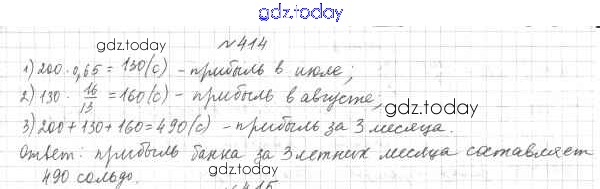 gdz.today
gdz.today №414
1) 200 · 0,65 = 130 (с) - прибыль в июле;
2) 130 · 16/13 = 160 (с) - прибыль в августе;
gdz.today
3) 200 + 130 + 160 = 490 (с) - прибыль за 3 месяца.
Ответ: прибыль банка за 3 летних месяца составляет
490 сольдо.
gdz.today
№415